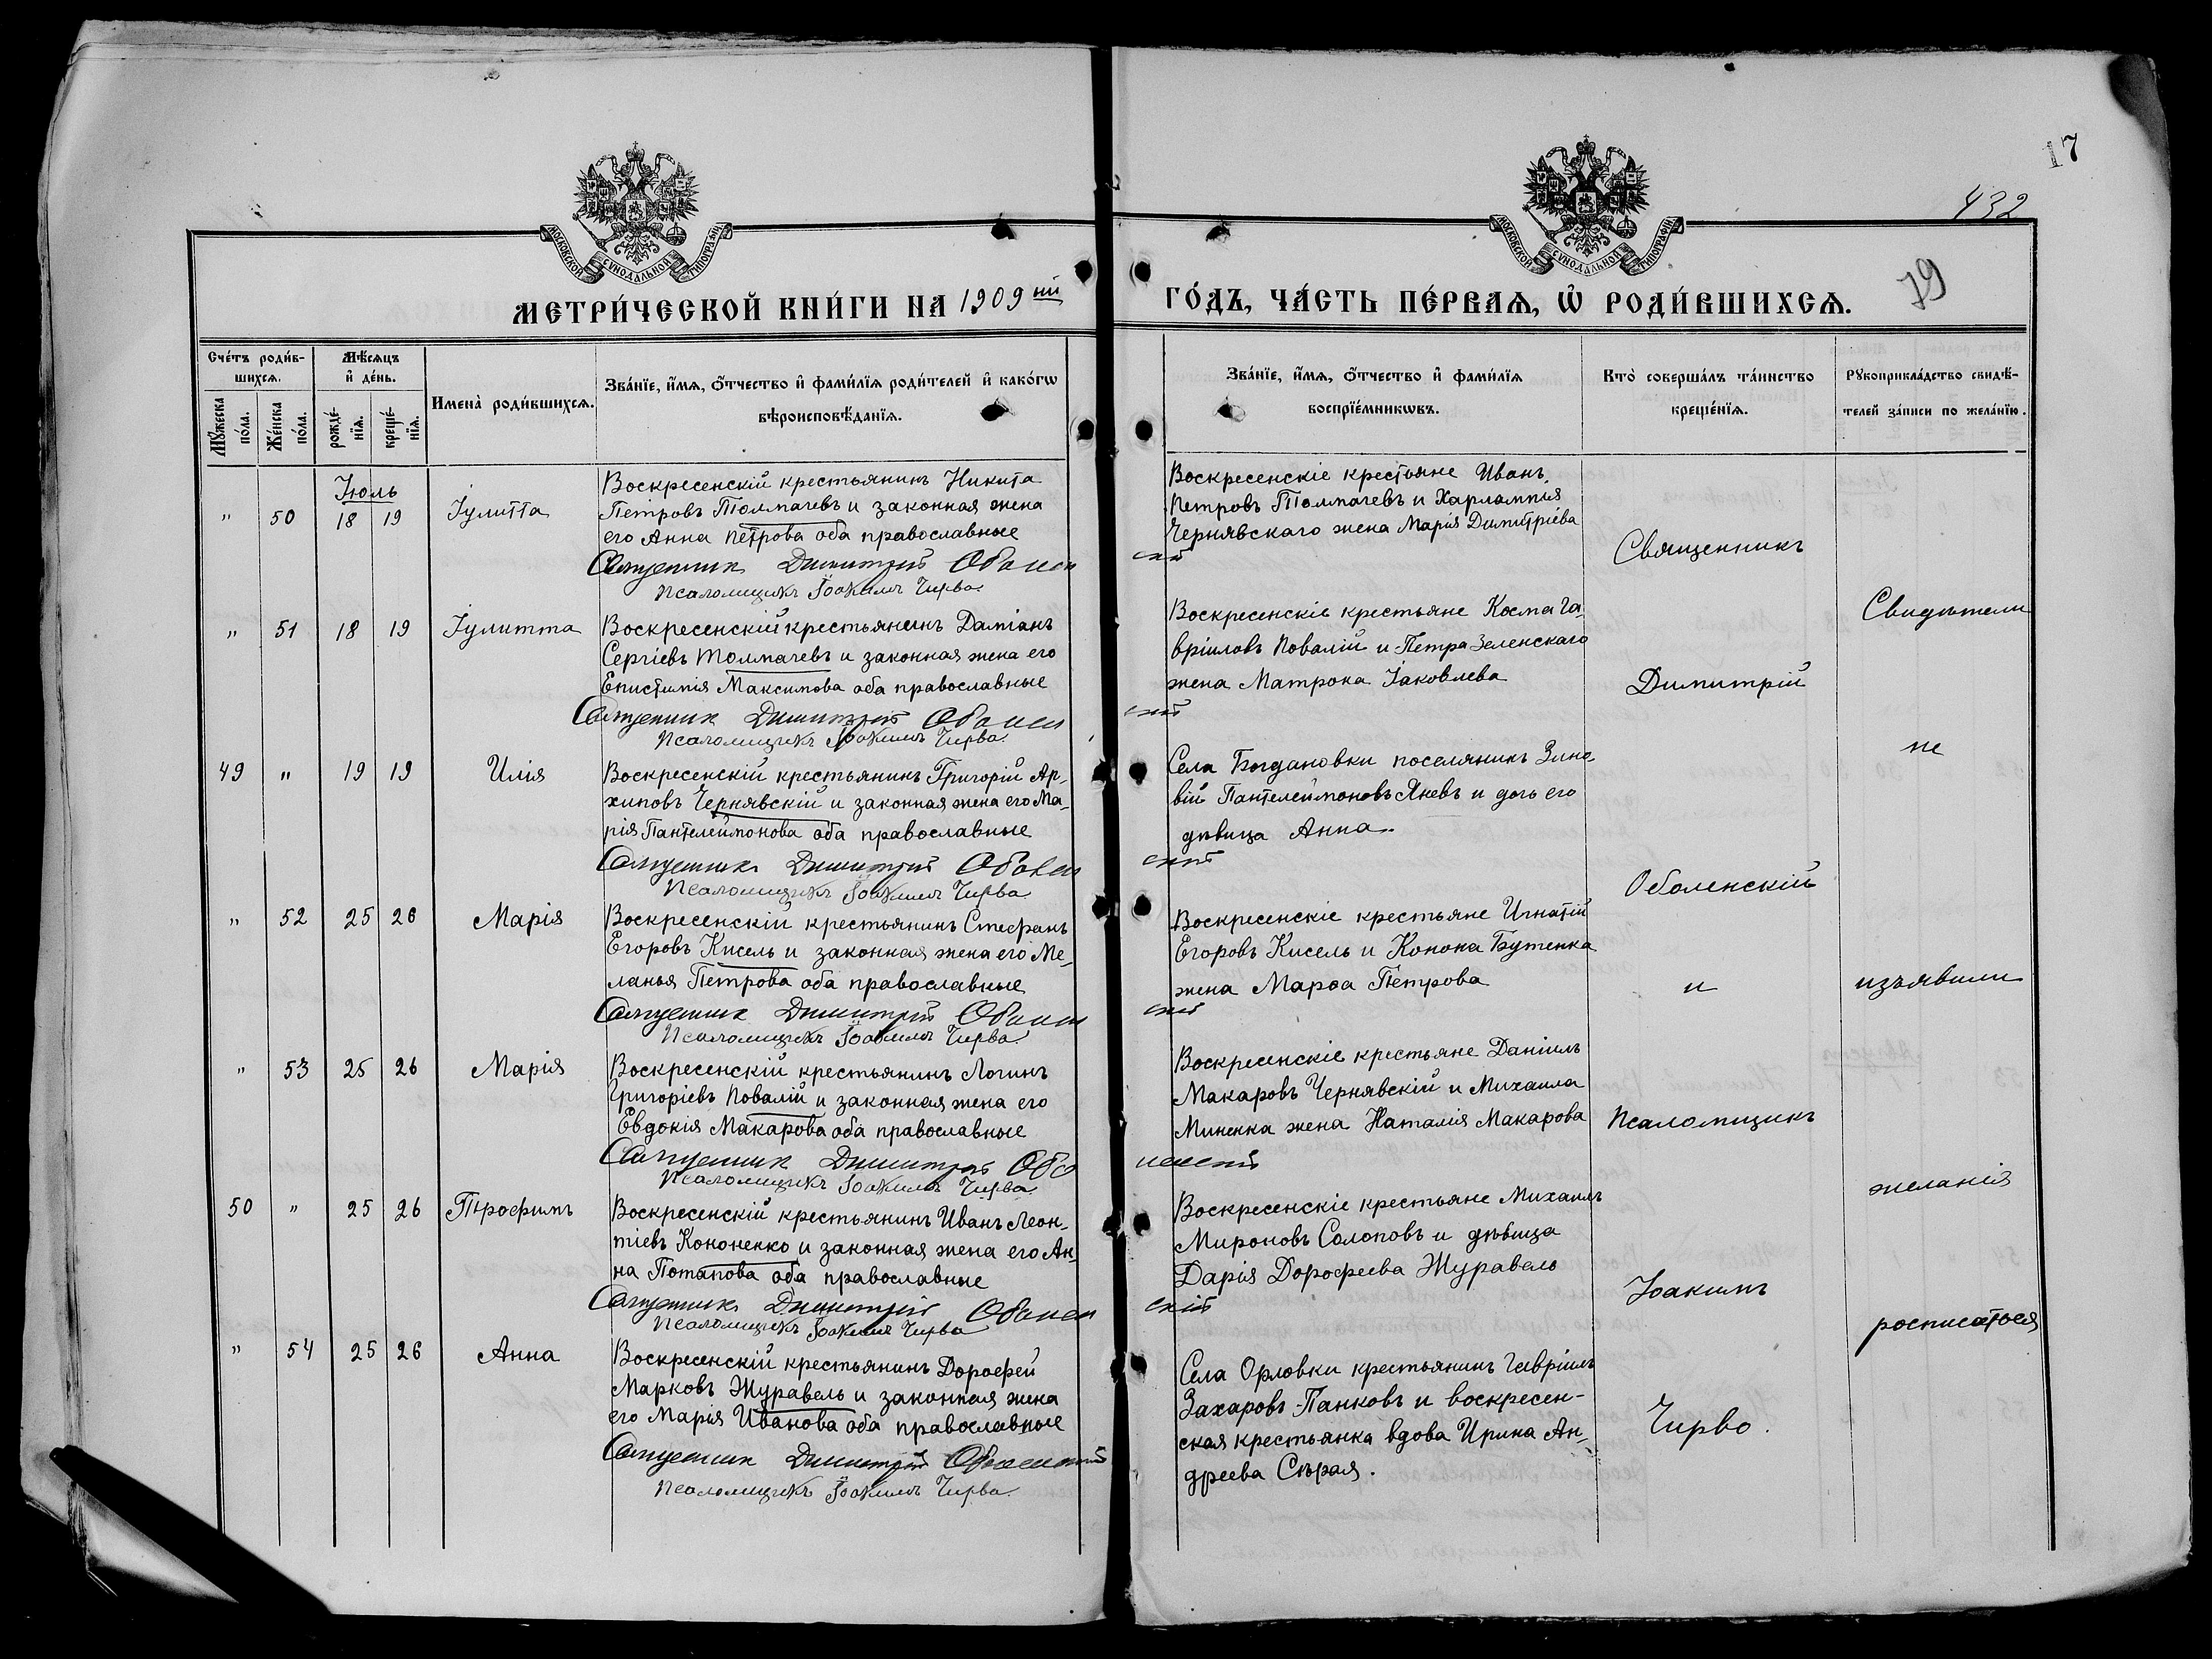 17
432
79
МОСКОВСКОЙ СѴНОДАЛЬНОЙ ТИПОГРАФІИ
МОСКОВСКОЙ СѴНОДАЛЬНОЙ ТИПОГРАФІИ
МЕТРИ́ЧЕСКОЙ КНИ́ГИ НА 1909 ый
ГО́ДЪ, ЧА́СТЬ ПЕ́РВАѦ, Ѽ РОДИ́ВШИХСѦ.
Сче́тъ роди́в-
шихсѧ.
Мѣ́сѧцъ
и҆ де́нь.
Мꙋ́жеска
по́ла.
Же́нска
по́ла.
рожде́-
нїѧ.
креще́-
нїѧ.
Имена̀ роди́вшихсѧ.
Зва́нїе, и҆́мѧ, ѻ҆́тчество и҆ фами́лїѧ роди́телей и҆ како́гѡ
вѣроисповѣ́данїѧ.
Зва́нїе, и҆́мѧ, ѻ҆́тчество и҆ фами́лїѧ
воспрїе́мникѡвъ.
Кто̀ соверша́лъ та́инство
креще́нїѧ.
Рꙋкоприкла́дство свидѣ́-
телей за́писи по жела́нїю.
Іюль
" 50 18 19 Іулитта
Воскресенскій крестьянинъ Никита
Петровъ Толмачевъ и законная жена
его Анна Петрова оба православные
Священникъ Димитрій Оболен
скій
Псаломщикъ Іоакимъ Чирва
Воскресенскіе крестьяне Иванъ
Петровъ Толмачевъ и Харлампия
Чернявскаго жена Марія Димитріева
" 51 18 19 Іулитта
Воскресенскій крестьянинъ Даміанъ
Сергіевъ Толмачевъ и законная жена его
Епистимія Максимова оба православные
Священник Димитрій Оболен
скій
Псаломщикъ Іоакимъ Чирва
Воскресенскіе крестьяне Косма Га-
вріиловъ Повалій и Петра Зеленскаго
жена Матрона Іаковлева
49 " 19 19 Илія
Воскресенскій крестьянинъ Григорій Ар-
хиповъ Чернявскій и законная жена его Ма-
рія Пантелеймонова оба православные
Священникъ Димитрій Оболен
скій
Псаломщикъ Іоакимъ Чирва
Села Богдановки поселянинъ Зино-
вій Пантелеймоновъ Яневъ и дочь его
дѣвица Анна.
" 52 25 26 Марія
Воскресенскій крестьянинъ Стефанъ
Егоровъ Кисель и законная жена его Ме-
ланья Петрова оба православные
Священник Димитрій Оболен
скій
Псаломщикъ Іоакимъ Чирва
Воскресенскіе крестьяне Игнатій
Егоровъ Кисель и Конона Бутенка
жена Марѳа Петрова
" 53 25 26 Марія
Воскресенскій крестьянинъ Логинъ
Григоріевъ Повалій и законная жена его
Евдокія Макарова оба православные
Священник Димитрій Обо
ленскій
Псаломщикъ Іоакимъ Чирва
Воскресенскіе крестьяне Даніилъ
Макаровъ Чернявскій и Михаила
Миненка жена Наталія Макарова
50 " 25 26 Трофимъ
Воскресенскій крестьянинъ Иванъ Леон-
тіевъ Кононенко и законная жена его Ан-
на Потапова оба православные
Священникъ Димитрій Оболен
скій
Псаломщикъ Іоакимъ Чирва
Воскресенскіе крестьяне Михаилъ
Мироновъ Солоповъ и дѣвица
Дарія Дорофеева Журавель
" 54 25 26 Анна
Воскресенскій крестьянинъ Дорофей
Марковъ Журавель и законная жена
его Марія Иванова оба православные
Священник Димитрій Оболенскій
Псаломщикъ Іоакимъ Чирва
Села Орловки крестьянинъ Гавріилъ
Захаровъ Панковъ и воскресен-
ская крестьянка вдова Ирина Ан-
дреева Сѣрая.
Священникъ
Димитрій
Оболенскій
и
Псаломщикъ
Іоакимъ
Чирво.
Свидѣтели
не
изъявили
желанія
росписаться